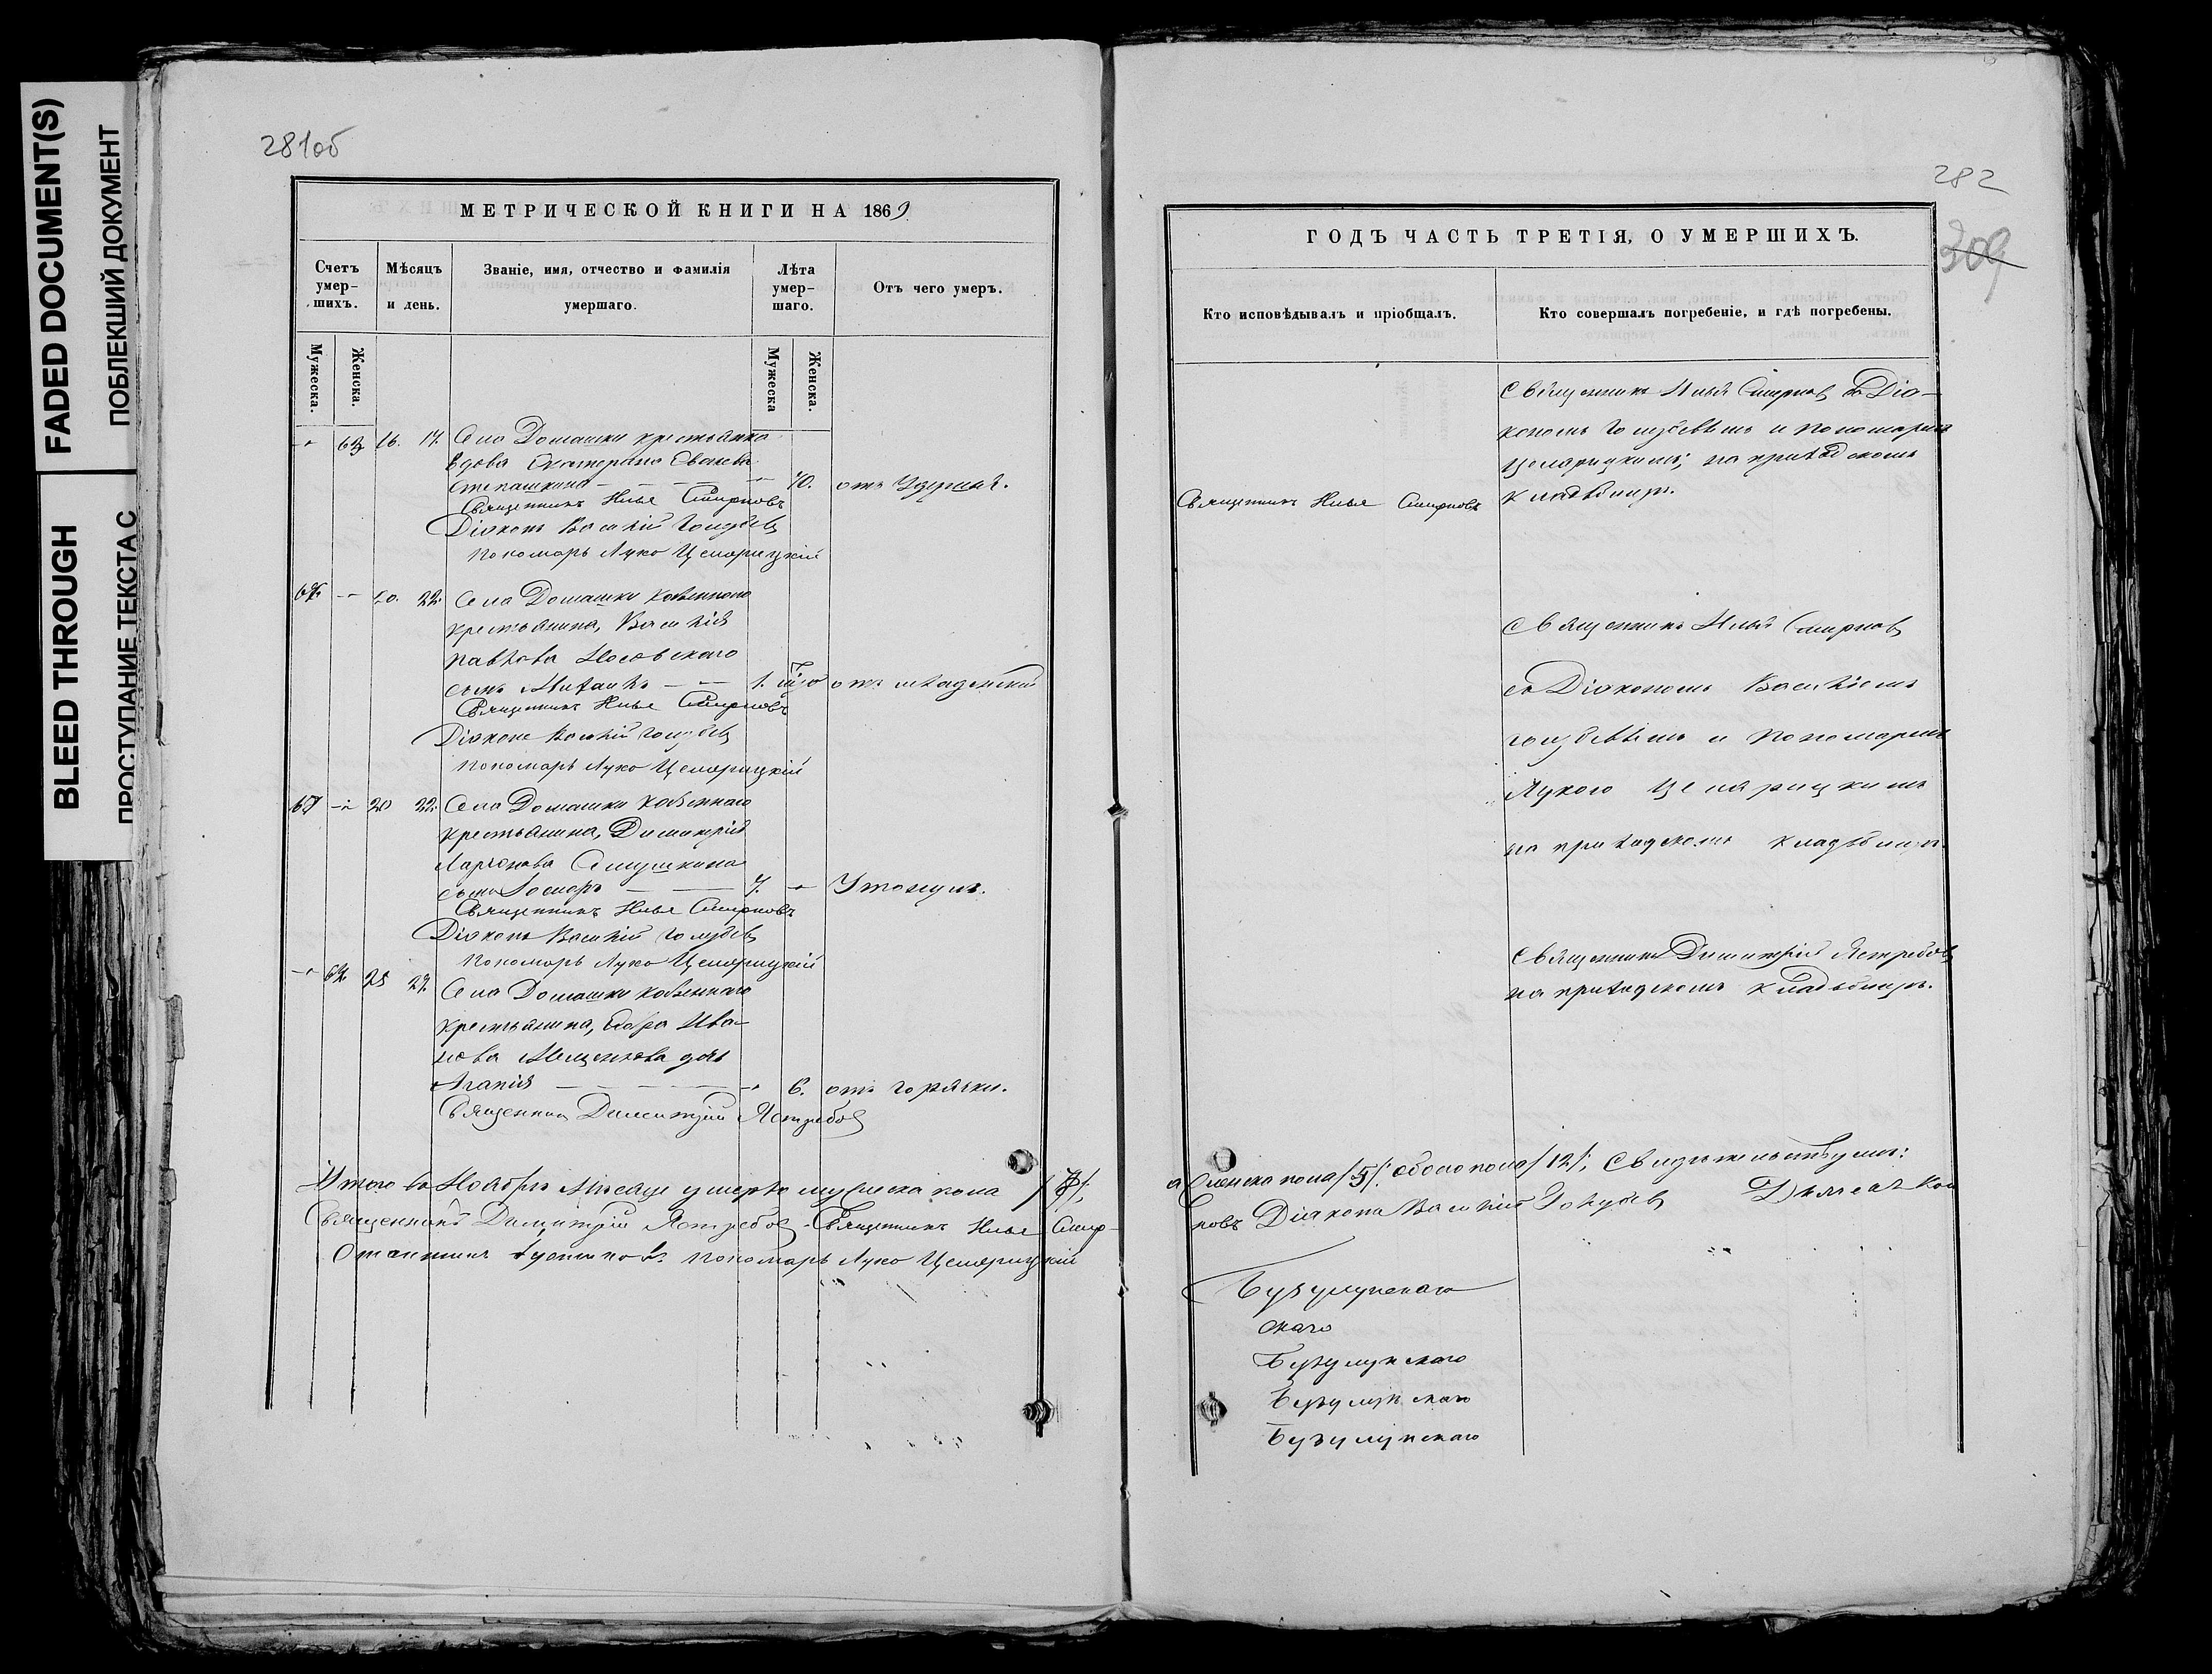 FADED DOCUMENT(S)
ПОБЛЕКШИЙ ДОКУМЕНТ
BLEED THROUGH
ПРОСТУПАНИЕ ТЕКСТА С
281об
МЕТРИЧЕСКОЙ КНИГИ НА 1869
Счетъ умер-шихъ.
Мѣсяцъ и день.
Званіе, имя, отчество и фамилія умершаго.
Лѣта умер-шаго.
Отъ чего умеръ.
Мужеска.
Женска.
Мужеска
Женска.
16. 17. Села Домашки крестьянка
вдова Екатерина
Степашкина 70. отъ
Священникъ Илья Смирновъ
Діаконъ Василій Голубевъ
Пономарь Лука Цемарицкій
20. 22. Села Домашки казеннаго
крестьянина, Василія
Павлова Носовскаго
сынъ Михаилъ 1. го отъ младенчест
Священникъ Илья Смирновъ
Діаконъ Василій Голубевъ
Пономарь Лука Цемарицкій
20 22. Села Домашки казеннаго
крестьянина, Димитрія
Ларіонова
сынъ 7. Утонулъ.
Священникъ Илья Смирновъ
Діаконъ Василій Голубевъ
Пономарь Лука Цемарицкій
25 27. Села Домашки казеннаго
крестьянина, Ѳедора Ива-
нова Мещенкова дочь
Агапія 6. отъ горячки.
Священникъ Димитрій Ястребовъ
Итого въ Ноябрѣ Мѣсяце умерло мужеска пола /7/,
Священникъ Димитрій Ястребовъ Священникъ Илья Смир-
Пономарь Лука Цемарицкій
282
309
ГОДЪ ЧАСТЬ ТРЕТІЯ, О УМЕРШИХЪ.
Кто исповѣдывалъ и пріобщалъ.
Кто совершалъ погребеніе, и гдѣ погребены.
Священникъ Илья Смирновъ
Священникъ Илья Смирновъ съ Діа-
кономъ Голубевымъ и Пономаремъ
Цемарицкимъ; на приходскомъ
кладбищѣ.
Священникъ Илья Смирновъ
съ Діакономъ Василіемъ
Голубевымъ и Пономаремъ
Лукою Цемарицкимъ
на приходскомъ кладбищѣ.
Священникъ Димитрій Ястребовъ
на приходскомъ кладбищѣ.
а Женска пола /5/. обоего пола /12/, Свидѣтельствуемъ:
новъ Діаконъ Василій Голубевъ
Бузулукскаго
скаго
Бузулукскаго
Бузулукскаго
Бузулукскаго